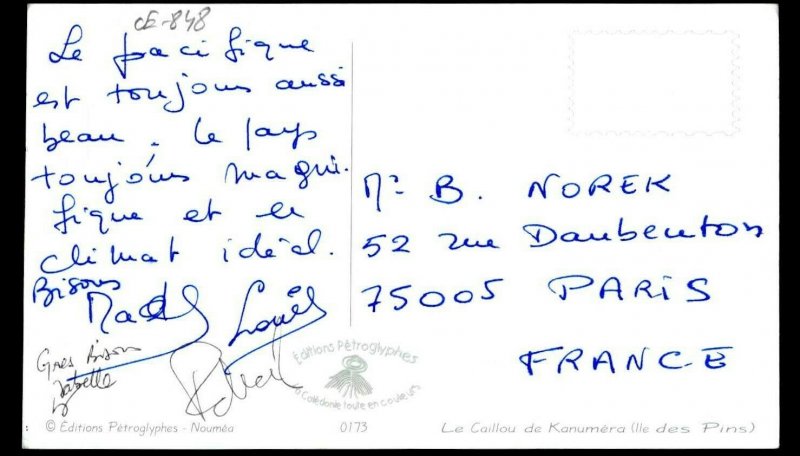 CE-848
Le pacifique
est toujours aussi
beau. Le pays
toujours magni-
fique et le
climat idéal.
Bisous
Gros Bisou
Isabelle
Mr B. NOREK
52 rue Daubenton
75005 PARIS
FRANCE
Éditions Pétroglyphes
la Calédonie toute en couleurs
© Éditions Pétroglyphes - Nouméa
0173
Le Caillou de Kanuméra (Ile des Pins)